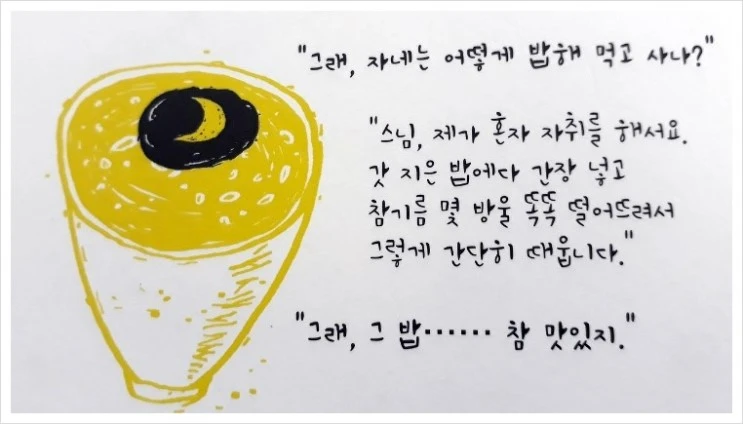 "그래, 자네는 어떻게 밥해 먹고 사나?"
"스님, 제가 혼자 자취를 해서요.
갓 지은 밥에다 간장 넣고
참기름 몇 방울 똑똑 떨어뜨려서
그렇게 간단히 때웁니다."
"그래, 그 밥…… 참 맛있지."